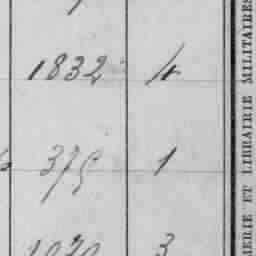 1832 4
375 1
1070 3
MERIE ET LIBRAIRIE MILITAIRES